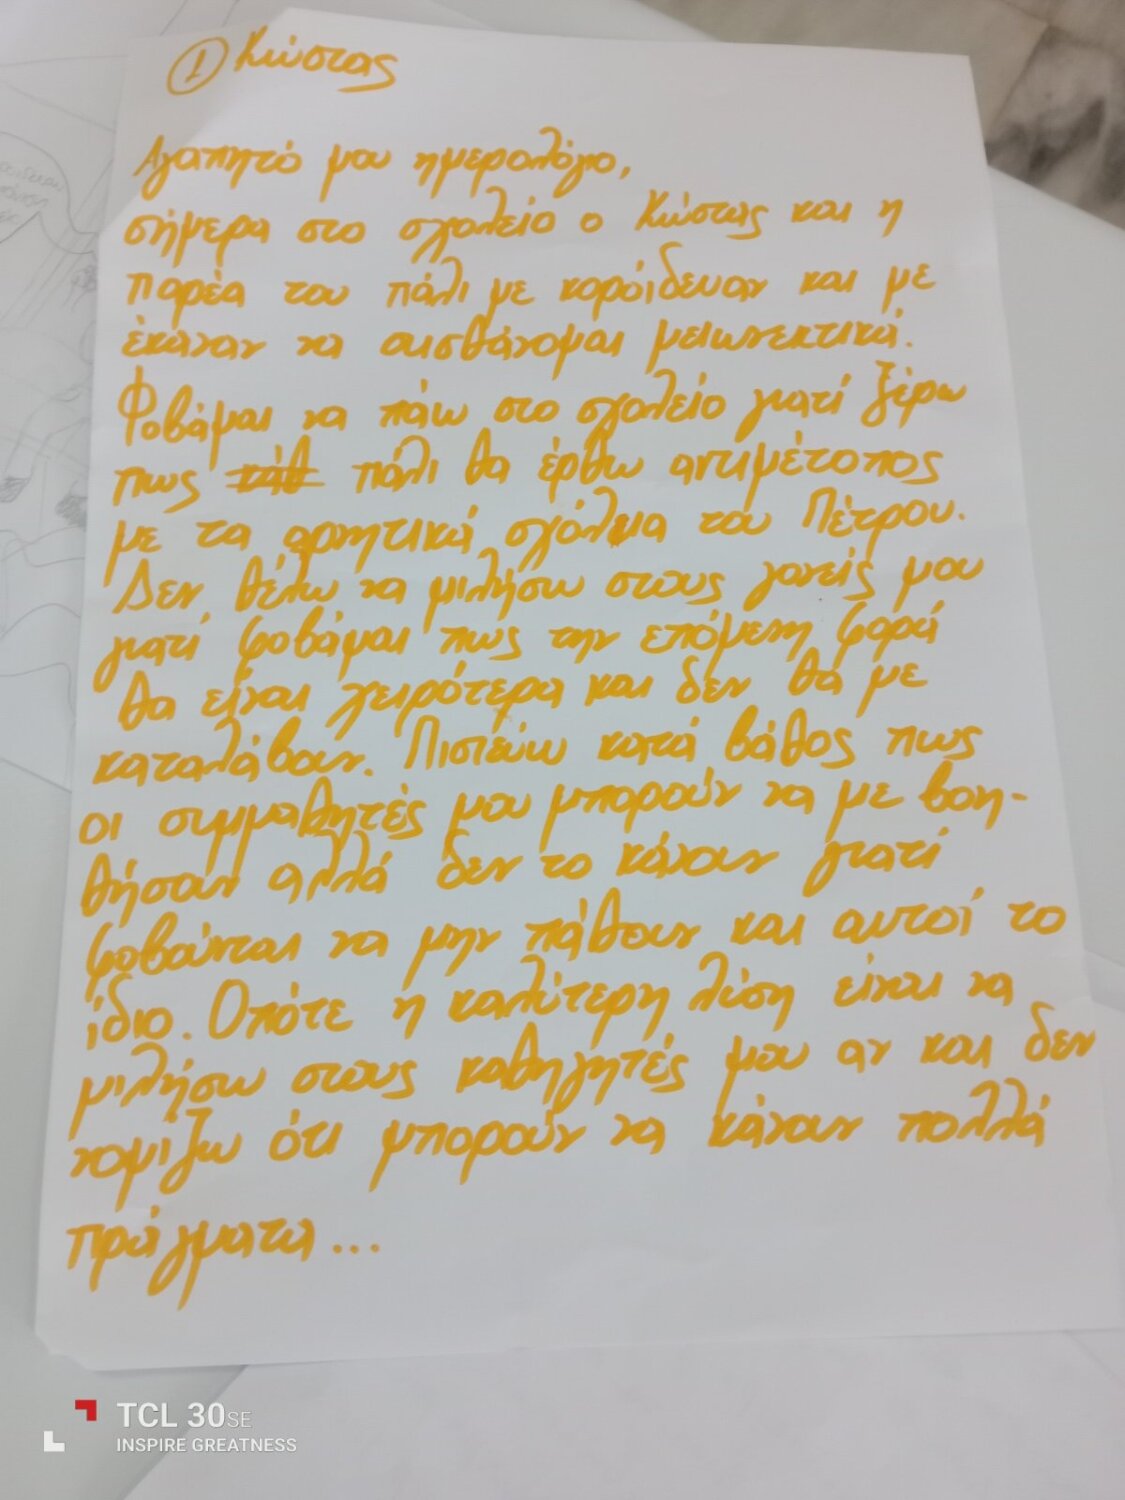 ① Κώστας
Αγαπητό μου ημερολόγιο,
σήμερα στο σχολείο ο Κώστας και η
παρέα του πάλι με κορόιδευαν και με
έκαναν να αισθάνομαι μειωνεκτικά.
Φοβάμαι να πάω στο σχολείο γιατί ξέρω
πως πάλι θα έρθω αντιμέτοπος
με τα αρνητικά σχόλια του Πέτρου.
Δεν θέλω να μιλήσω στους γονείς μου
γιατί φοβάμαι πως την επόμενη φορά
θα είναι χειρότερα και δεν θα με
καταλάβουν. Πιστεύω κατά βάθος πως
οι συμμαθητές μου μπορούν να με βοη-
θήσουν αλλά δεν το κάνουν γιατί
φοβούνται να μην πάθουν και αυτοί το
ίδιο. Οπότε η καλύτερη λύση είναι να
μιλήσω στους καθηγητές μου αν και δεν
νομίζω ότι μπορούν να κάνουν πολλά
πράγματα...
TCL 30 SE
INSPIRE GREATNESS